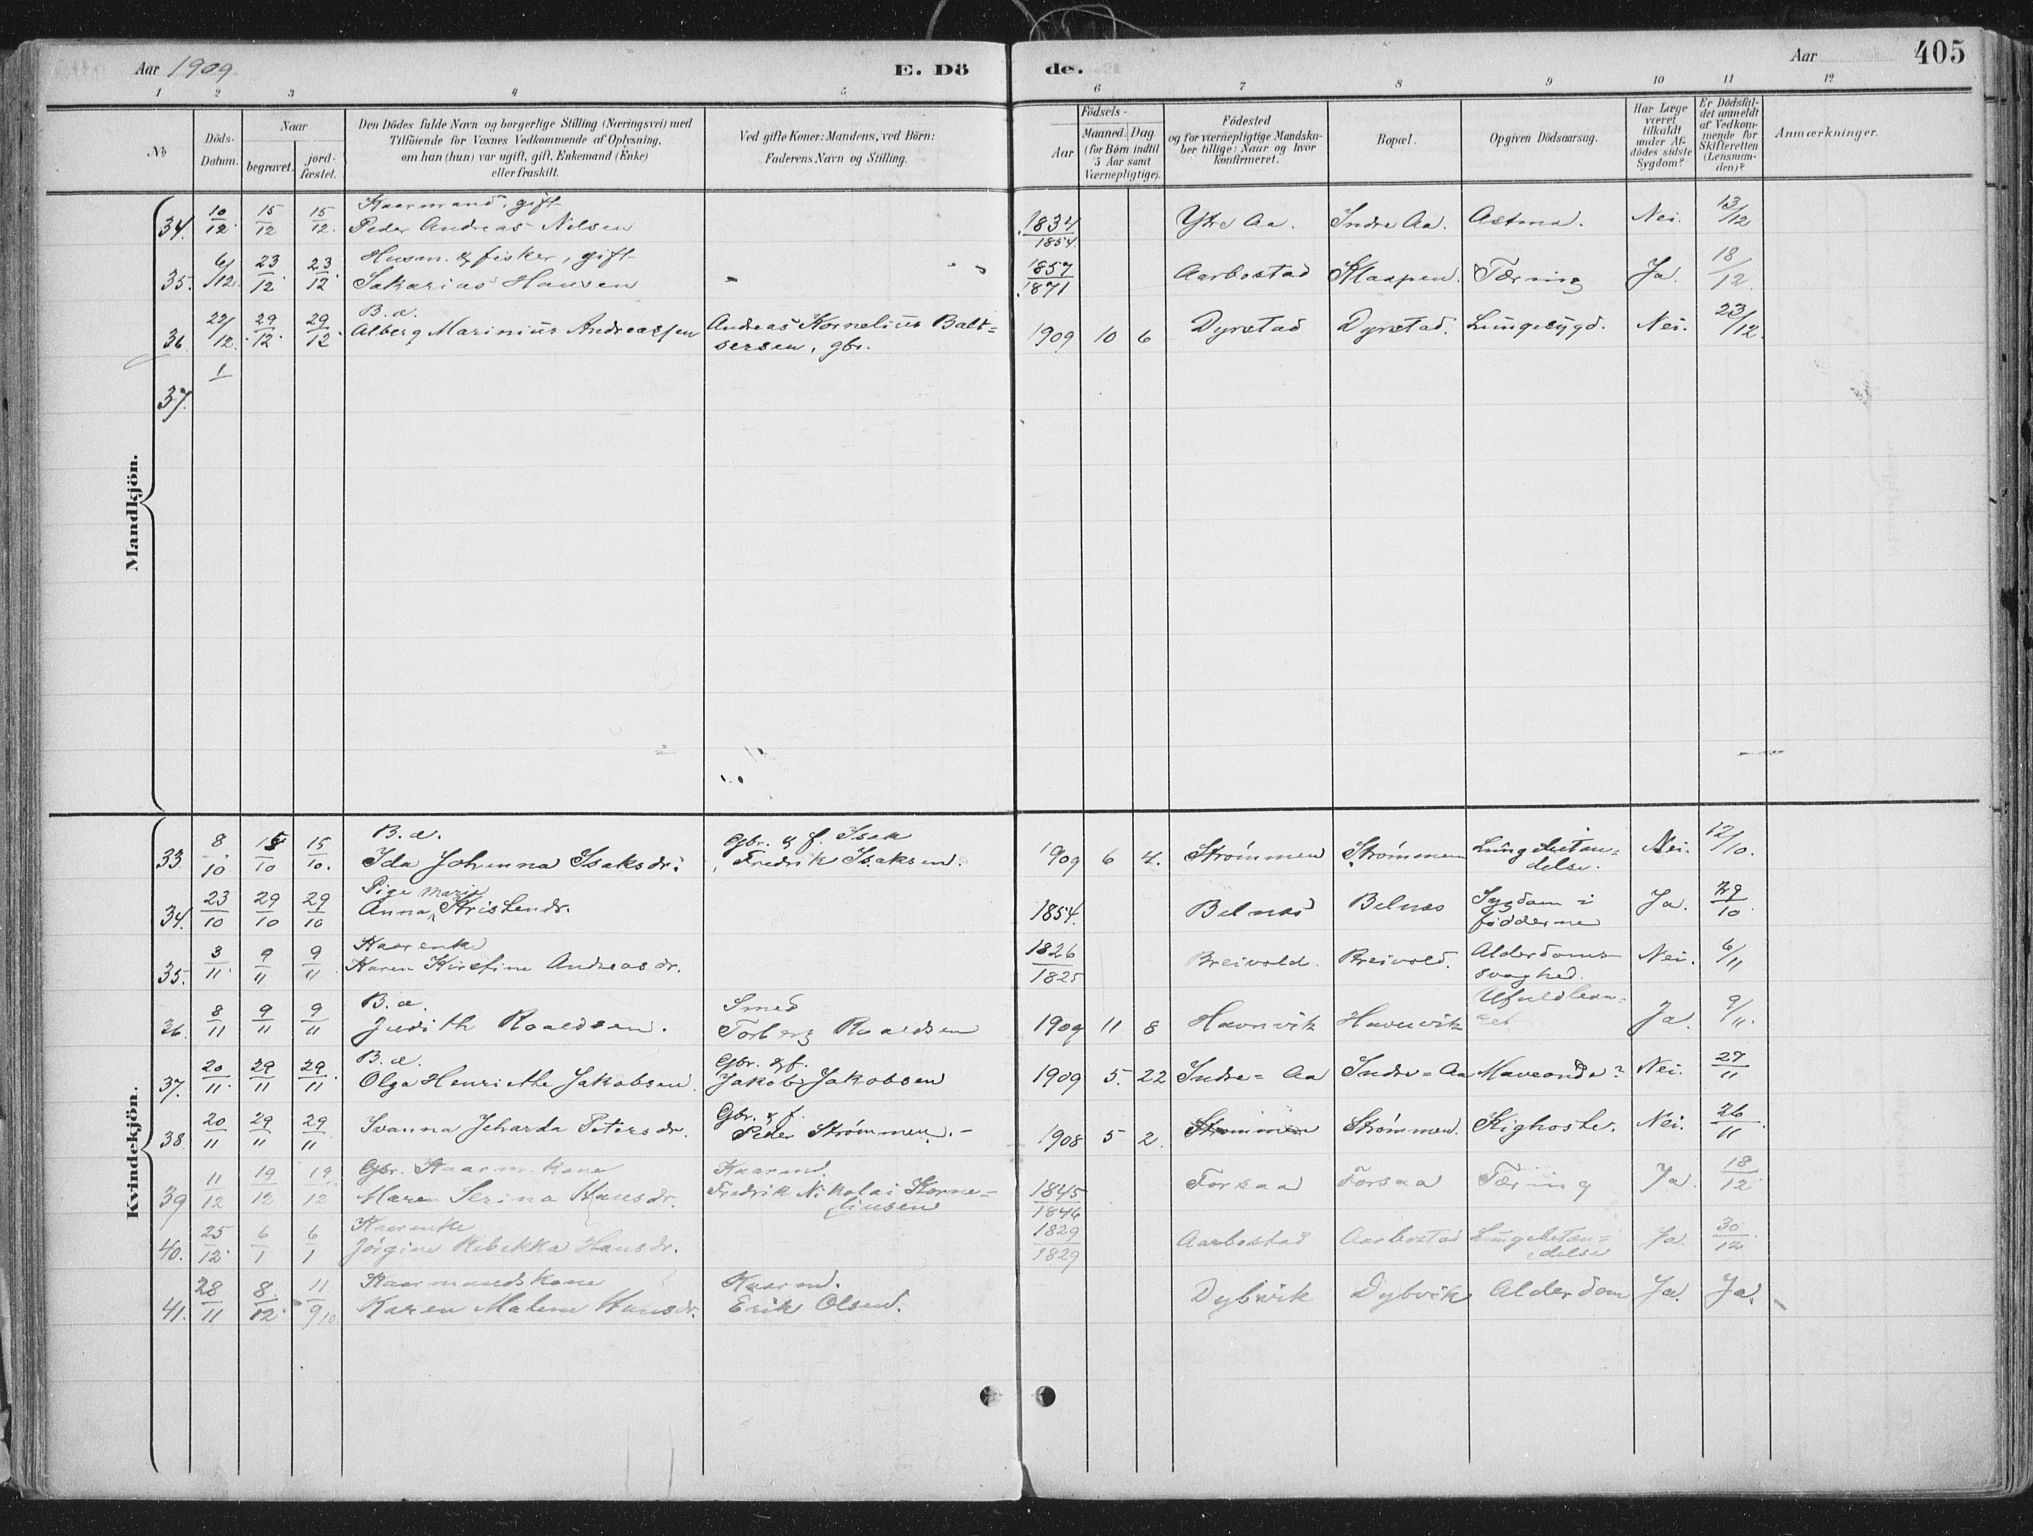 Aar 1909
E. Dö
de.
Aar
405
1 2 3 4 5 6 7 8 9 10 11 12
No
Döds-
Datum.
Naar
begravet.
jord-
fæstet.
Den Dödes fulde Navn og borgerlige Stilling (Næringsvei) med
Tilföiende for Voxnes Vedkommende af Oplysning,
om han (hun) var ugift, gift, Enkemand (Enke)
eller fraskilt.
Ved gifte Koner: Mandens, ved Börn:
Faderens Navn og Stilling.
Födsels-
Aar
Maaned. Dag
(for Børn indtil
5 Aar samt
Værnepligtige).
Födested
og for værnepligtige Mandska-
ber tillige: Naar og hvor
konfirmeret.
Bopæl.
Opgiven Dödsaarsag.
Har Læge
været
tilkaldt
under Af-
dödes sidste
Sygdom?
Er Dödsfal-
det anmeldt
af Vedkom-
mende for
Skifteretten
(Lensman-
den)?
Anmærkninger.
Mandkjön.
Kaarmand, gift
34. 10/12 15/12 15/12. Peder Andreas Nilsen 1834/1854. Ytre Aa. Indre Aa. Astma. Nei. 13/12
Husm. & fisker, gift
35. 6/12. 23/12. 23/12. Sakarias Hansen " " 1857/1871 Aarbostad Klaapen. Tæring Ja. 18/12.
B. æ.
36. 22/12. 29/12. 29/12. Alberg Marinius Andreassen Andreas Kornelius Balt=
sersen, gbr. 1909 10 6 Dyrstad Dyrstad. Lungesygd. Nei. 23/12.
37. 1/
Kvindekjön.
B. æ. Gbr. & f. Isak
33. 8/10 15/10 15/10. Ida Johanna Isaksdr. Fredrik Isaksen. 1909 6 4. Strømmen Strømmen Lungebetæn=
delse. Nei. 12/10.
Pige Marie
34. 23/10 29/10 29/10 Anna Kristendr. 1854. Belnes Belnes Sygdom i
fødderne Ja. 29/10
Kaarenke
35. 3/11. 9/11 9/11 Karen Kirstine Andreasdr. 1826/1825 Breivold. Breivold. Alderdoms-
svaghed. Nei. 6/11
B. æ. Smed
36. 8/11 9/11 9/11 Judith Roaldsen. Torberg Roaldsen 1909 11 8 Havnvik Havnvik Ja. 9/11.
B. æ. Gbr. & f.
37. 20/11. 29/11 29/11. Olga Henriette Jakobsen. Jakob Jakobsen 1909 5. 22 Indre=Aa Indre=Aa Maveonde? Nei. 27/11
Gbr. & f.
38. 20/11 29/11 29/11 Ivanna Jeharda Petersdr. Peder Strømmen. - 1908 5 2. Strømmen Strømmen. Kighoste. Nei. 26/11
Gbr. Kaarm. kone Kaarmd.
39 11/12 19/12 19/12 Maren Serina Hansdr. Fredrik Nikolai Korne=
liusen 1845/1846 Forsaa Forsaa Tæring Ja. 18/12.
Kaarenke
40. 25/12. 6/1 6/1 Jørgine Rebekka Hansdr. 1829/1829 Aarbostad Aarbostad Lungebetæn=
delse Ja. 30/12
Kaarmandskone Kaarmd.
41. 28/11 8/12. 11/9 10 Karen Malene Hansdr. Erik Olsen. Dybvik Dybvik Alderdom Ja. Ja.